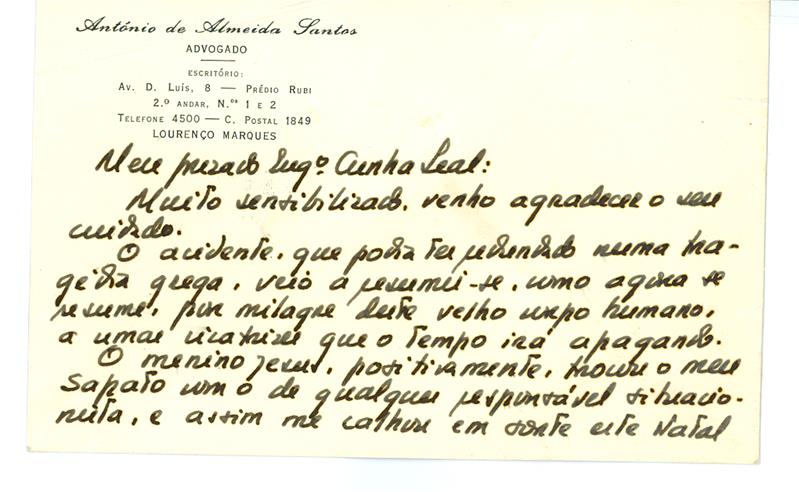 António de Almeida Santos
ADVOGADO
ESCRITÓRIO:
AV. D. LUÍS, 8 — PRÉDIO RUBI
2.º ANDAR, N.ºs 1 E 2
TELEFONE 4500 — C. POSTAL 1849
LOURENÇO MARQUES
Meu prezado Engº Cunha Leal:
Muito sensibilizado, venho agradecer o seu
cuidado.
O acidente, que podia ter redundado numa tra-
gédia grega, veio a resumir-se, como agora se
resume, por milagre deste velho corpo humano,
a umas cicatrizes que o tempo irá apagando.
O menino Jesus, positivamente, trocou o meu
sapato com o de qualquer responsável situacio-
nista, e assim me calhou em sorte este Natal